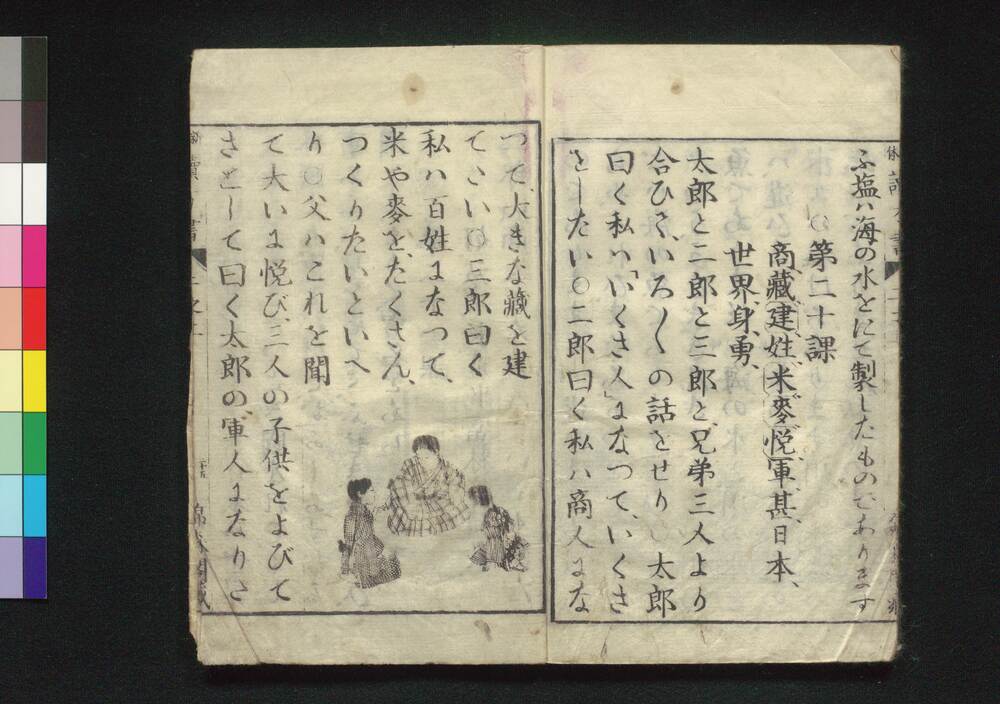 ふ塩ハ海の水をにて製したものであります
○第二十課
商、藏、建、姓、米、麥、悦、軍、甚、日本、
世界、身、勇、
太郎と二郎と三郎と、兄弟三人より
合ひて、いろ〱の話をせり○太郎
曰く私ハ「いくさ人」になつて、いくさ
をしたい○二郎曰く私ハ商人にな
つて、大きな藏を建
てたい○三郎曰く
私ハ百姓になつて、
米や麥を、たくさん、
つくりたいといへ
り○父ハこれを聞
て大いに悦び、三人の子供をよびて
さとして曰く太郎の、軍人になりた